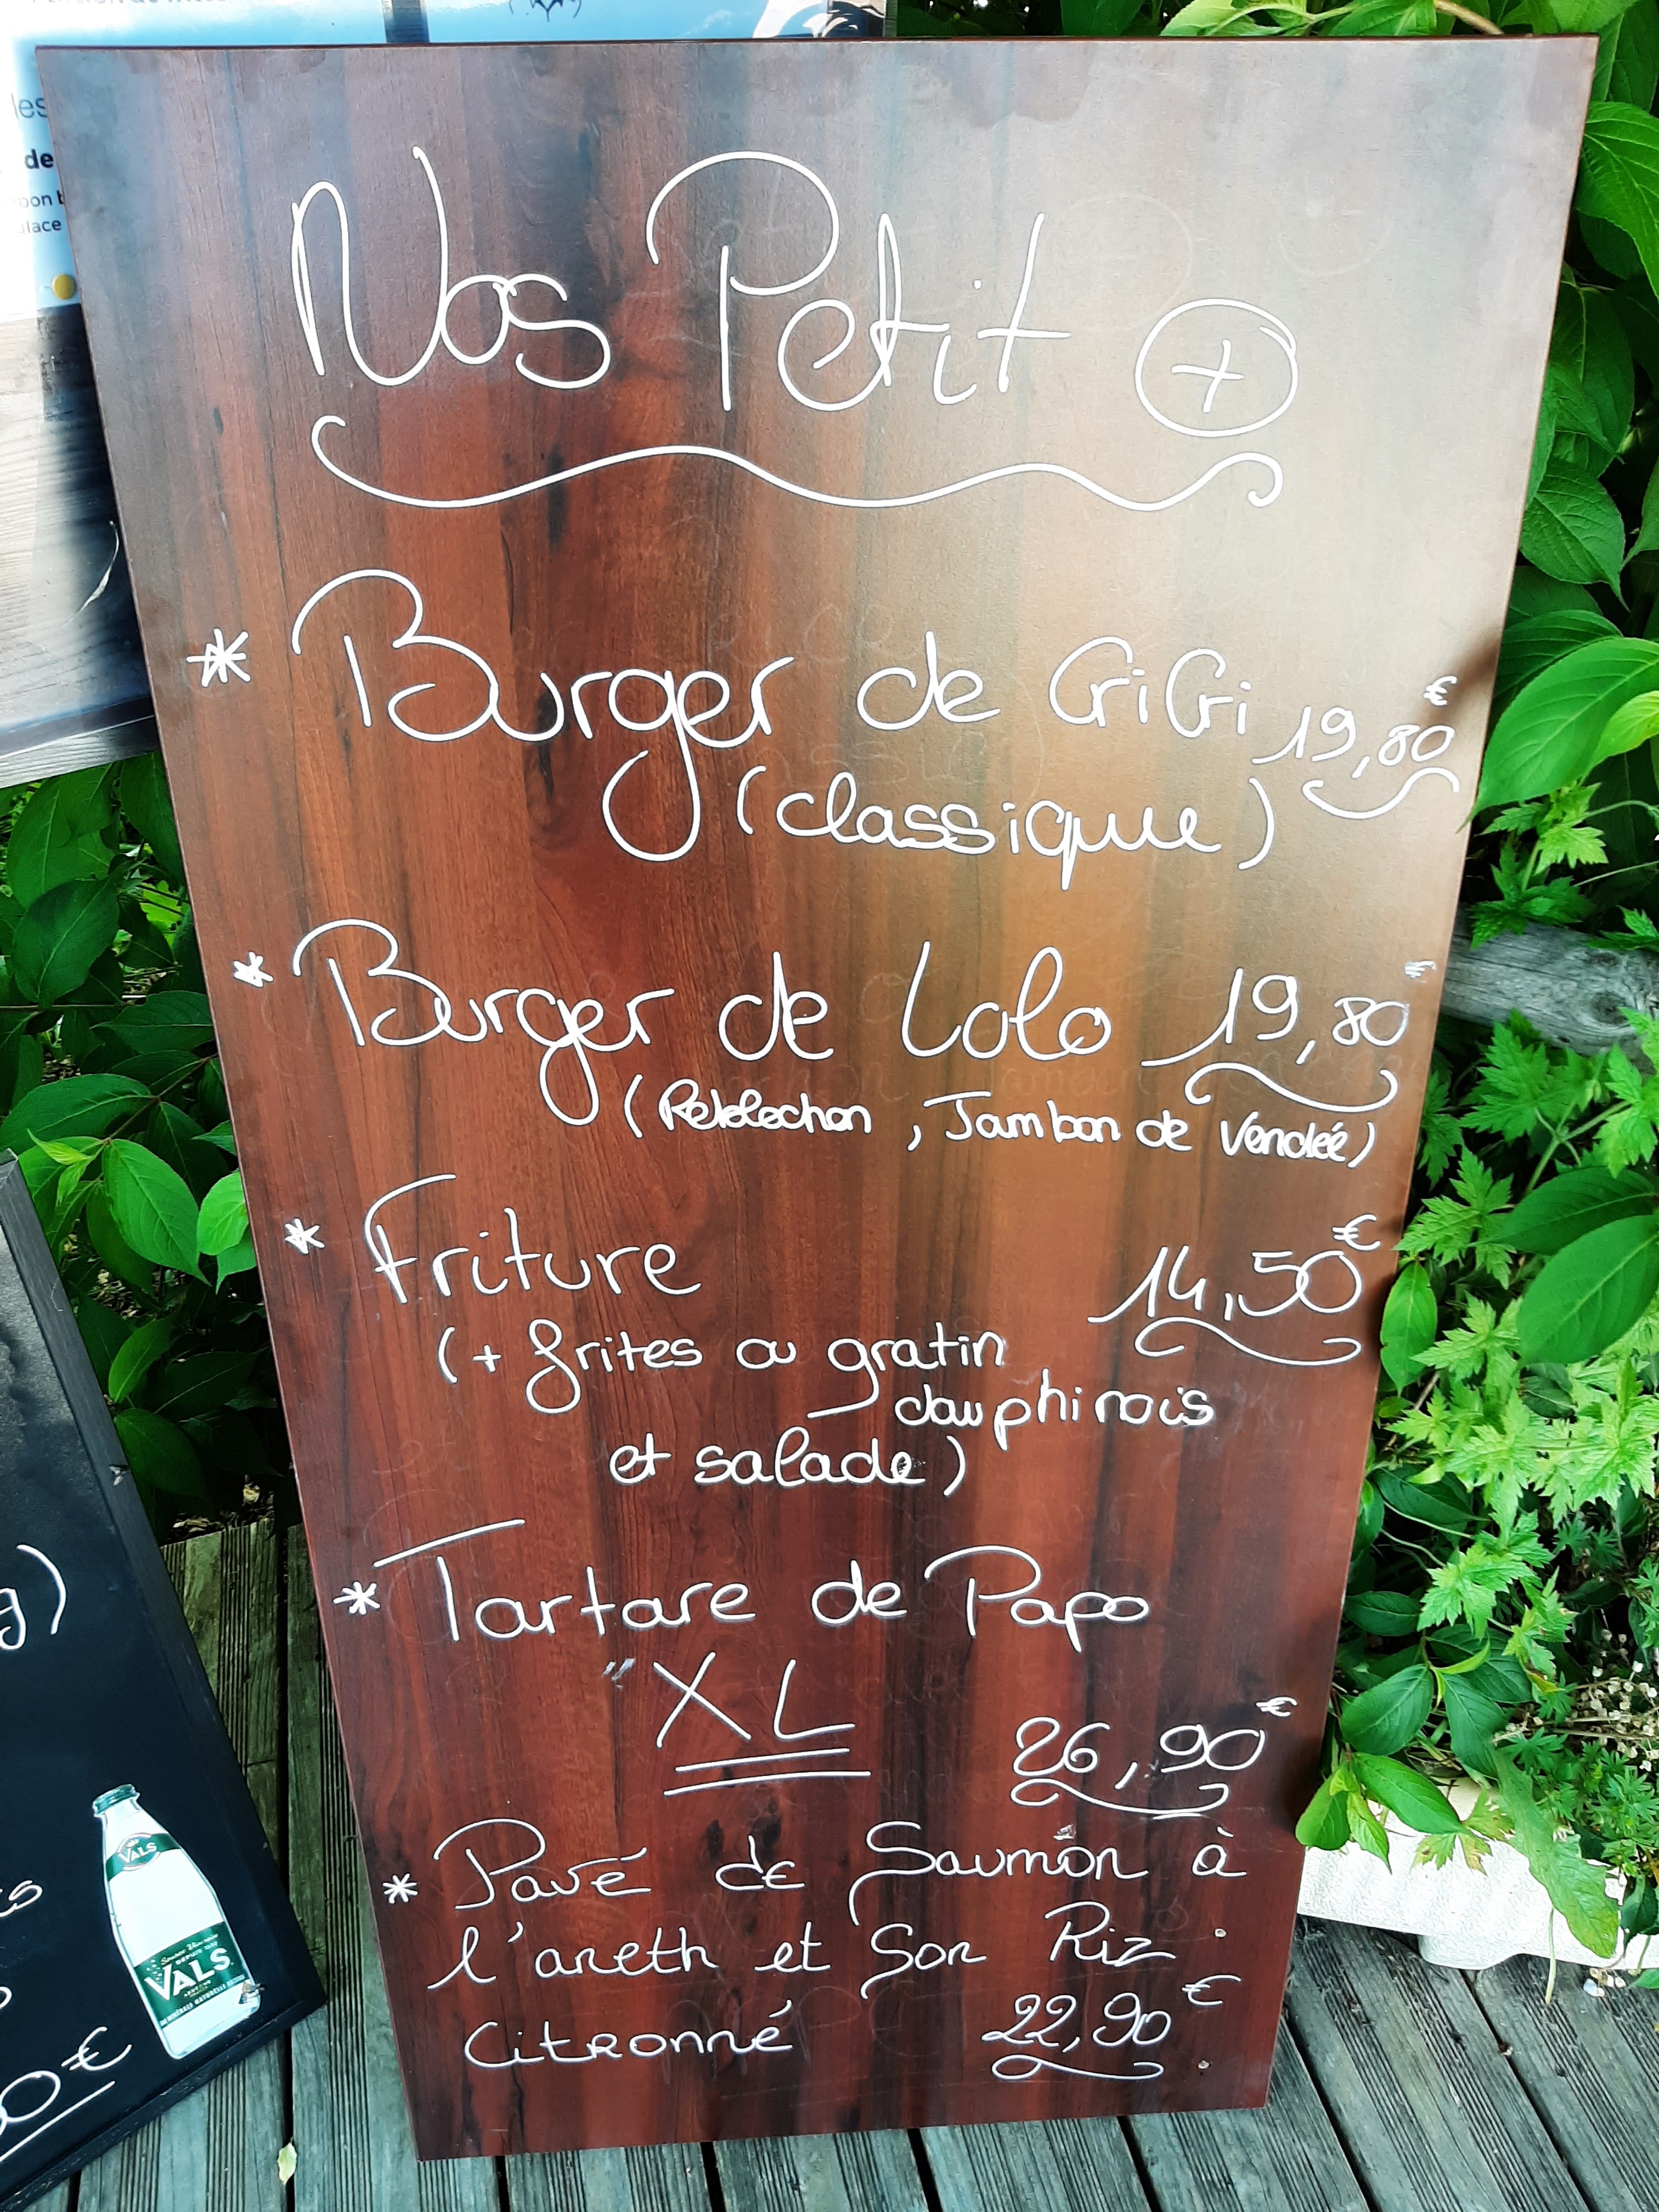 les
de
Nos Petit +
* Burger de GiGi 19,80€
(classique)
* Burger de Lolo 19,80€
(Reblochon, Jambon de Vendée)
* Friture 14,50€
(+ frites ou gratin
dauphinois
et salade)
* Tartare de Papo
"XL
26,90€
* Pavé de Saumon à
l'aneth et Son Riz
Citronné 22,90€
g)
VALS
VALS
0€